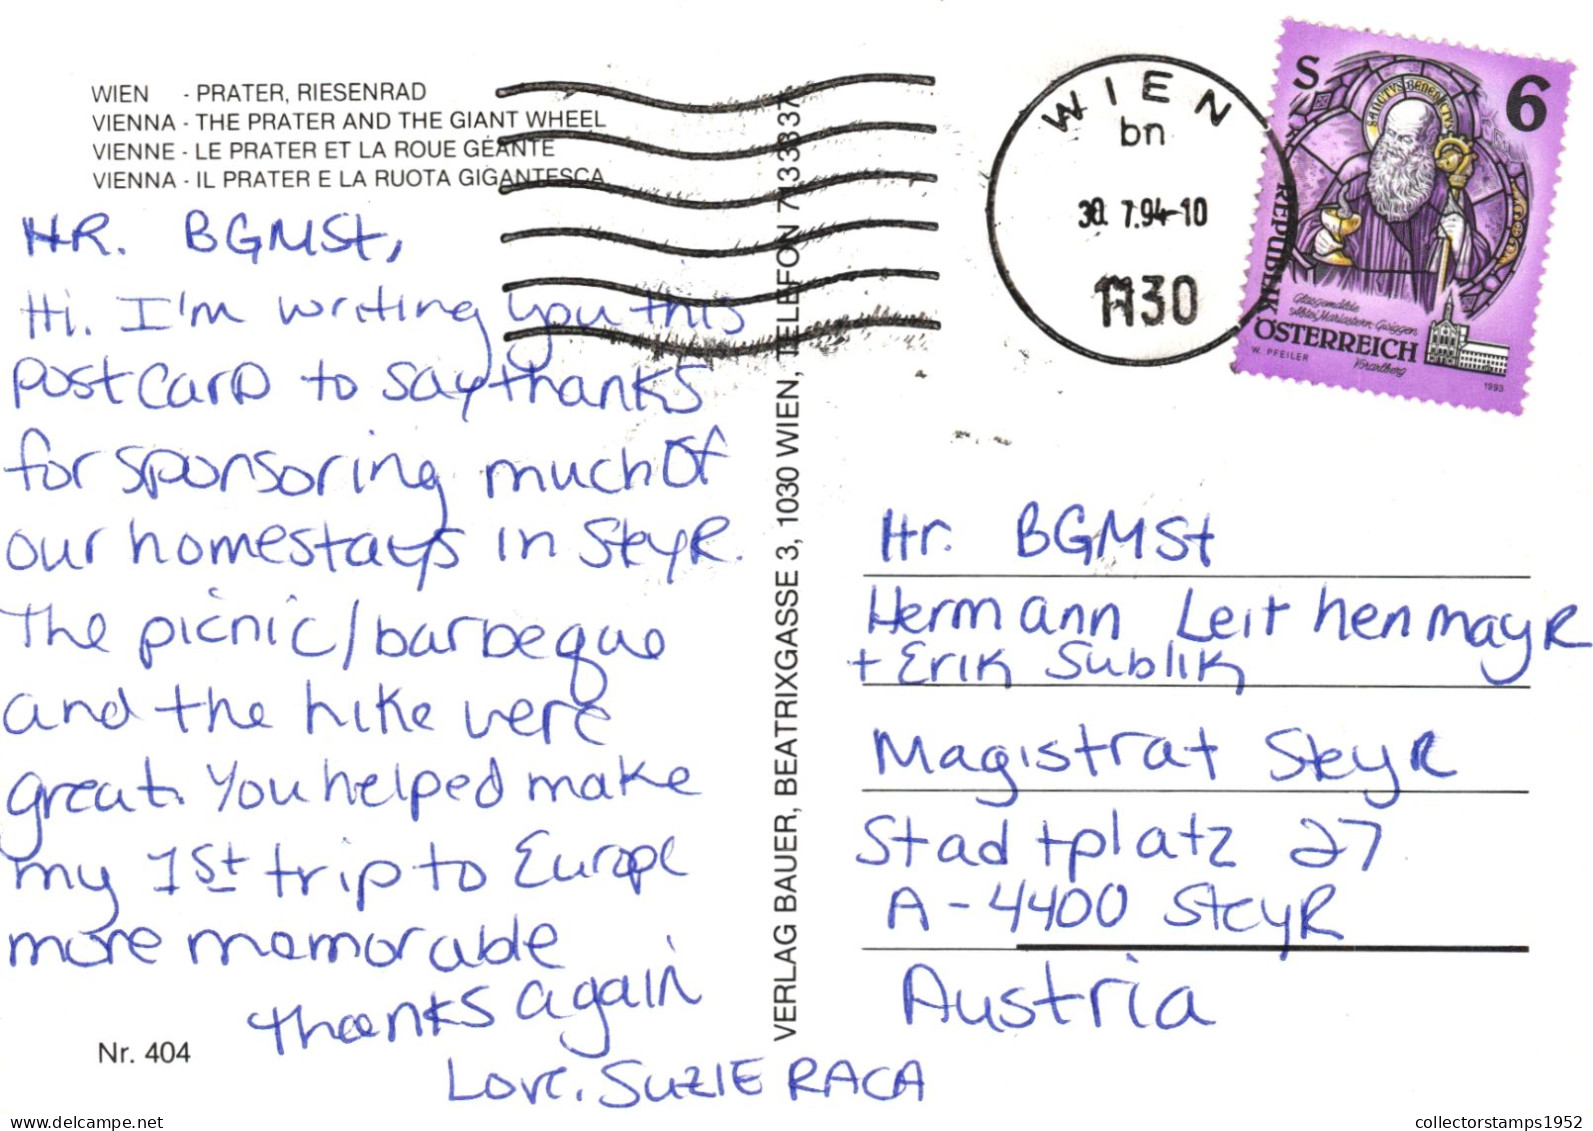 WIEN - PRATER, RIESENRAD
VIENNA - THE PRATER AND THE GIANT WHEEL
VIENNE - LE PRATER ET LA ROUE GÉANTE
VIENNA - IL PRATER E LA RUOTA GIGANTESCA
HR. BGMSt,
Hi. I'm writing you this
postcard to say thanks
for sponsoring much of
our homestays in Steyr.
The picnic/barbeque
and the hike were
great. You helped make
my 1st trip to Europe
more memorable
thanks again
Love, SUZIE RACA
Nr. 404
VERLAG BAUER, BEATRIXGASSE 3, 1030 WIEN, TELEFON 7133337
WIEN
bn
30. 7.94-10
1130
S 6
SANCTUS BENEDICTUS
REPUBLIK
ÖSTERREICH
Glasgemälde
Abtei Mariastern-Gwiggen
Vorarlberg
W. PFEILER
1993
Hr. BGMSt
Hermann Leithenmayr
+ Erik Sublik
Magistrat Steyr
Stadtplatz 27
A-4400 Steyr
Austria
collectorstamps1952